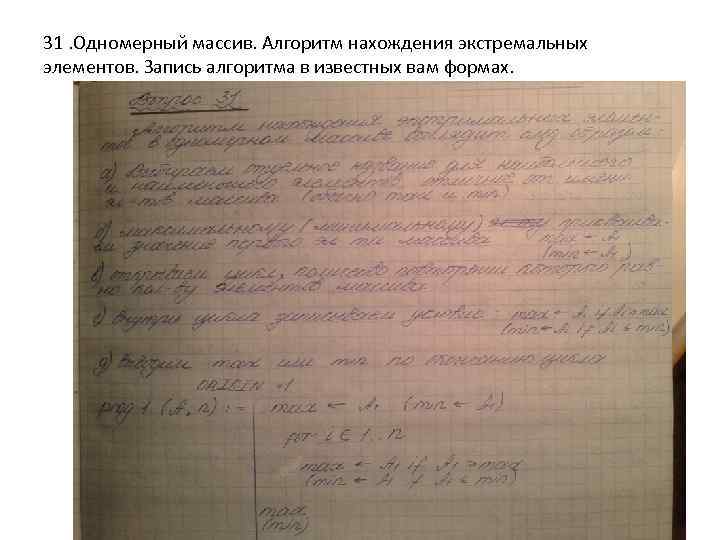 31 .Одномерный массив. Алгоритм нахождения экстремальных
элементов. Запись алгоритма в известных вам формах.
Вопрос 31
Алгоритм нахождения экстремальных элемен-
тов в одномерном массиве выглядит след. образом:
а) Выбираем отдельное название для наибольшего
и наименьшего элементов, отличное от имени
эл-тов массива (обычно max и min)
б) максимальному (минимальному) присваива-
ем значение первого эл-та массива max ← A₁
(min ← A₁)
в) открываем цикл, число повторений которого рав-
но кол-ву элементов массива
г) внутри цикла записываем условие: max ← Ai if Ai > max
(min ← Ai if Ai ≤ min)
д) вводим max или min по окончанию цикла
ORIGIN = 1
prog 1 (A, n) := max ← A₁ (min ← A₁)
for i ∈ 1..n
max ← Ai if Ai > max
(min ← Ai if Ai ≤ min)
max
(min)